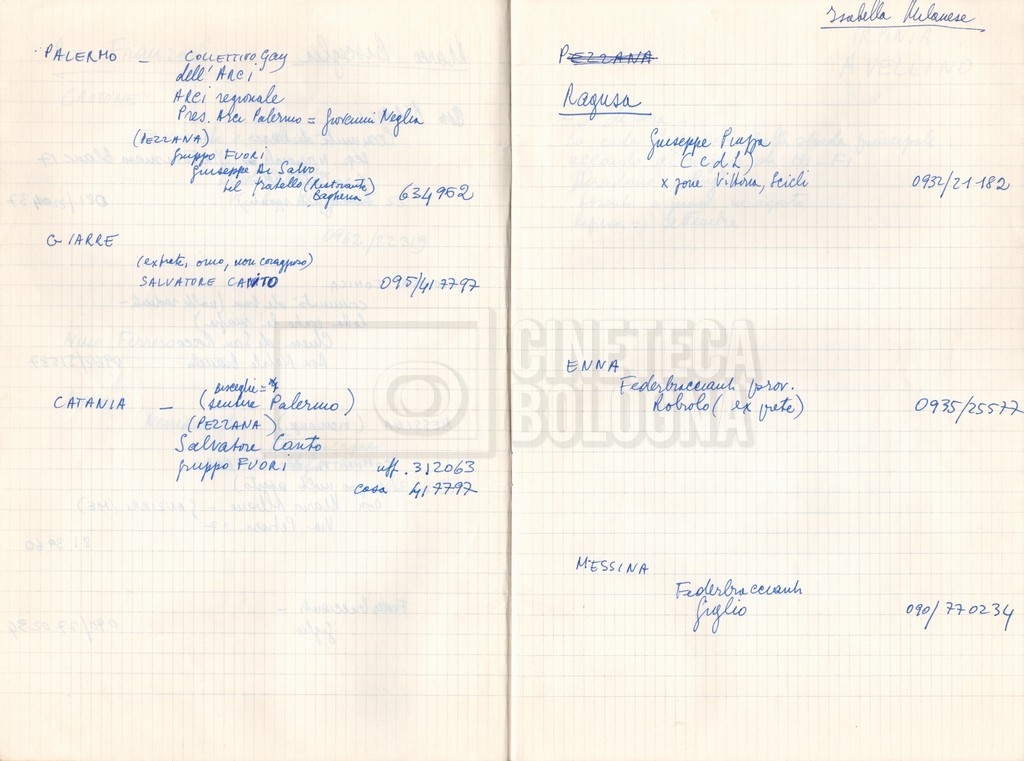 PALERMO — COLLETTIVO Gay
dell'ARCI
ARCI regionale
Pres. Arci Palermo = Giovanni Neglia
(PEZZANA)
gruppo FUORI
Giuseppe Di Salvo
tel fratello (Ristorante) 634962
Bagheria
GIARRE
(ex frate, omo, non coraggioso)
SALVATORE CANTO 095/417797
Bisceglie =
CATANIA — (sentire Palermo)
(PEZZANA)
Salvatore Canto
gruppo FUORI uff. 312063
casa 417797
Isabella Milanese
PEZZANA
Ragusa
Giuseppe Piazza
(CdL)
x zone Vittoria, Scicli 0932/21182
ENNA
Federbraccianti prov.
(ex prete) 0935/25577
MESSINA
Federbraccianti
Giglio 090/770234
CINETECA
BOLOGNA